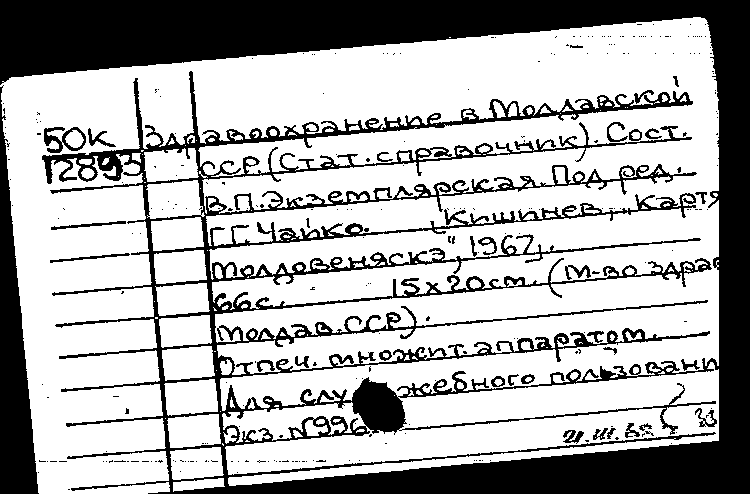 50К Здравоохранение в Молдавской
12893 ССР. (Стат. справочник). Сост.
В.П. Экземплярская. Под ред.
Г.Г. Чайко. Кишинев, "Картя
Молдовеняскэ", 1967.
66с. 15х20см. (М-во здрав
Молдав. ССР).
Отпеч. множит. аппаратом.
Для служебного пользовани
Экз. №996